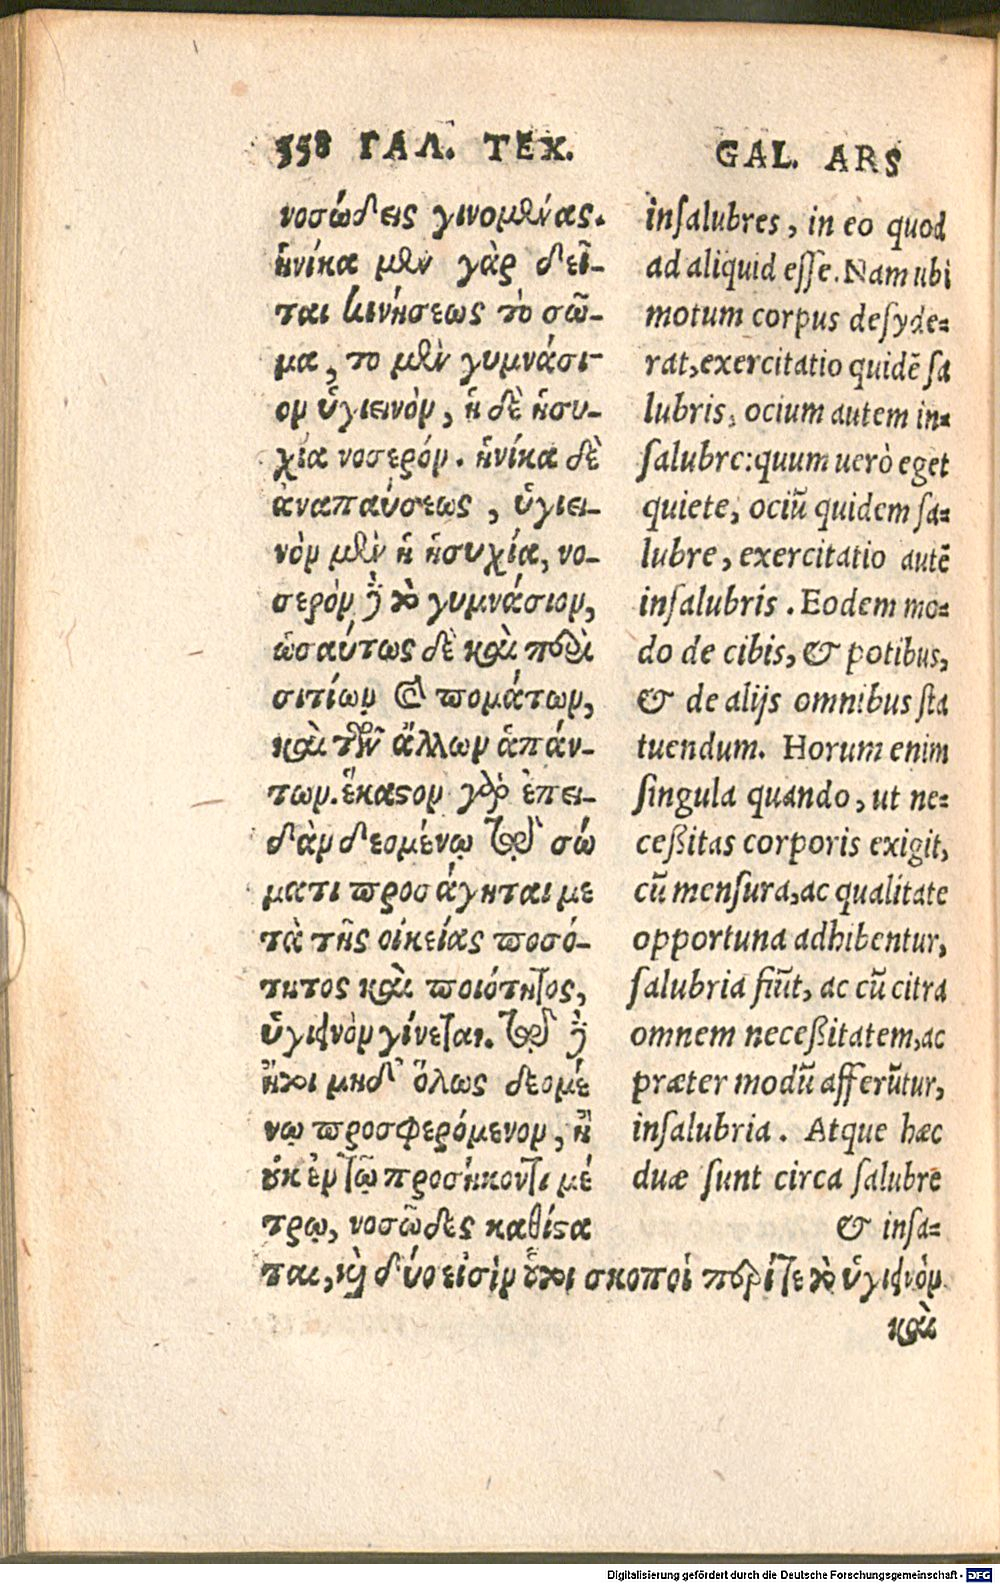 558 ΓΑΛ. ΤΕΧ.
νοσώδεις γινομένας.
ἡνίκα μὲν γὰρ δεῖ-
ται κινήσεως τὸ σῶ-
μα, το μὲν γυμνάσι-
ον ὑγιεινὸν, ἡ δὲ ἡσυ-
χία νοσερόν. ἡνίκα δὲ
ἀναπαύσεως, ὑγιει-
νὸν μὲν ἡ ἡσυχία, νο-
σερὸν δὲ τὸ γυμνάσιον,
ὡσαύτως δὲ καὶ περὶ
σιτίων καὶ πομάτων,
καὶ τῶν ἄλλων ἁπάν-
των. ἕκαστον γὰρ ἐπει-
δὰν δεομένῳ τῷ σώ
ματι προσάγηται με
τὰ τῆς οἰκείας ποσό-
τητος καὶ ποιότητος,
ὑγιεινὸν γίνεται. τῷ δὲ
ἤτοι μηδ' ὅλως δεομέ
νῳ προσφερόμενον, ἢ
οὐκ ἐν τῷ προσήκοντι μέ
τρῳ, νοσῶδες καθίστα
ται, καὶ δύο εἰσὶν οὗτοι σκοποὶ περί τε τὸ ὑγιεινὸν
καὶ
GAL. ARS
insalubres, in eo quod
ad aliquid esse. Nam ubi
motum corpus desyde=
rat, exercitatio quidē sa
lubris, ocium autem in=
salubre: quum uerò eget
quiete, ociū quidem sa=
lubre, exercitatio autē
insalubris. Eodem mo=
do de cibis, & potibus,
& de alijs omnibus sta
tuendum. Horum enim
singula quando, ut ne=
ceßitas corporis exigit,
cū mensura, ac qualitate
opportuna adhibentur,
salubria fiūt, ac cū citra
omnem neceßitatem, ac
præter modū afferūtur,
insalubria. Atque hæc
duæ sunt circa salubre
& insa=
Digitalisierung gefördert durch die Deutsche Forschungsgemeinschaft - DFG